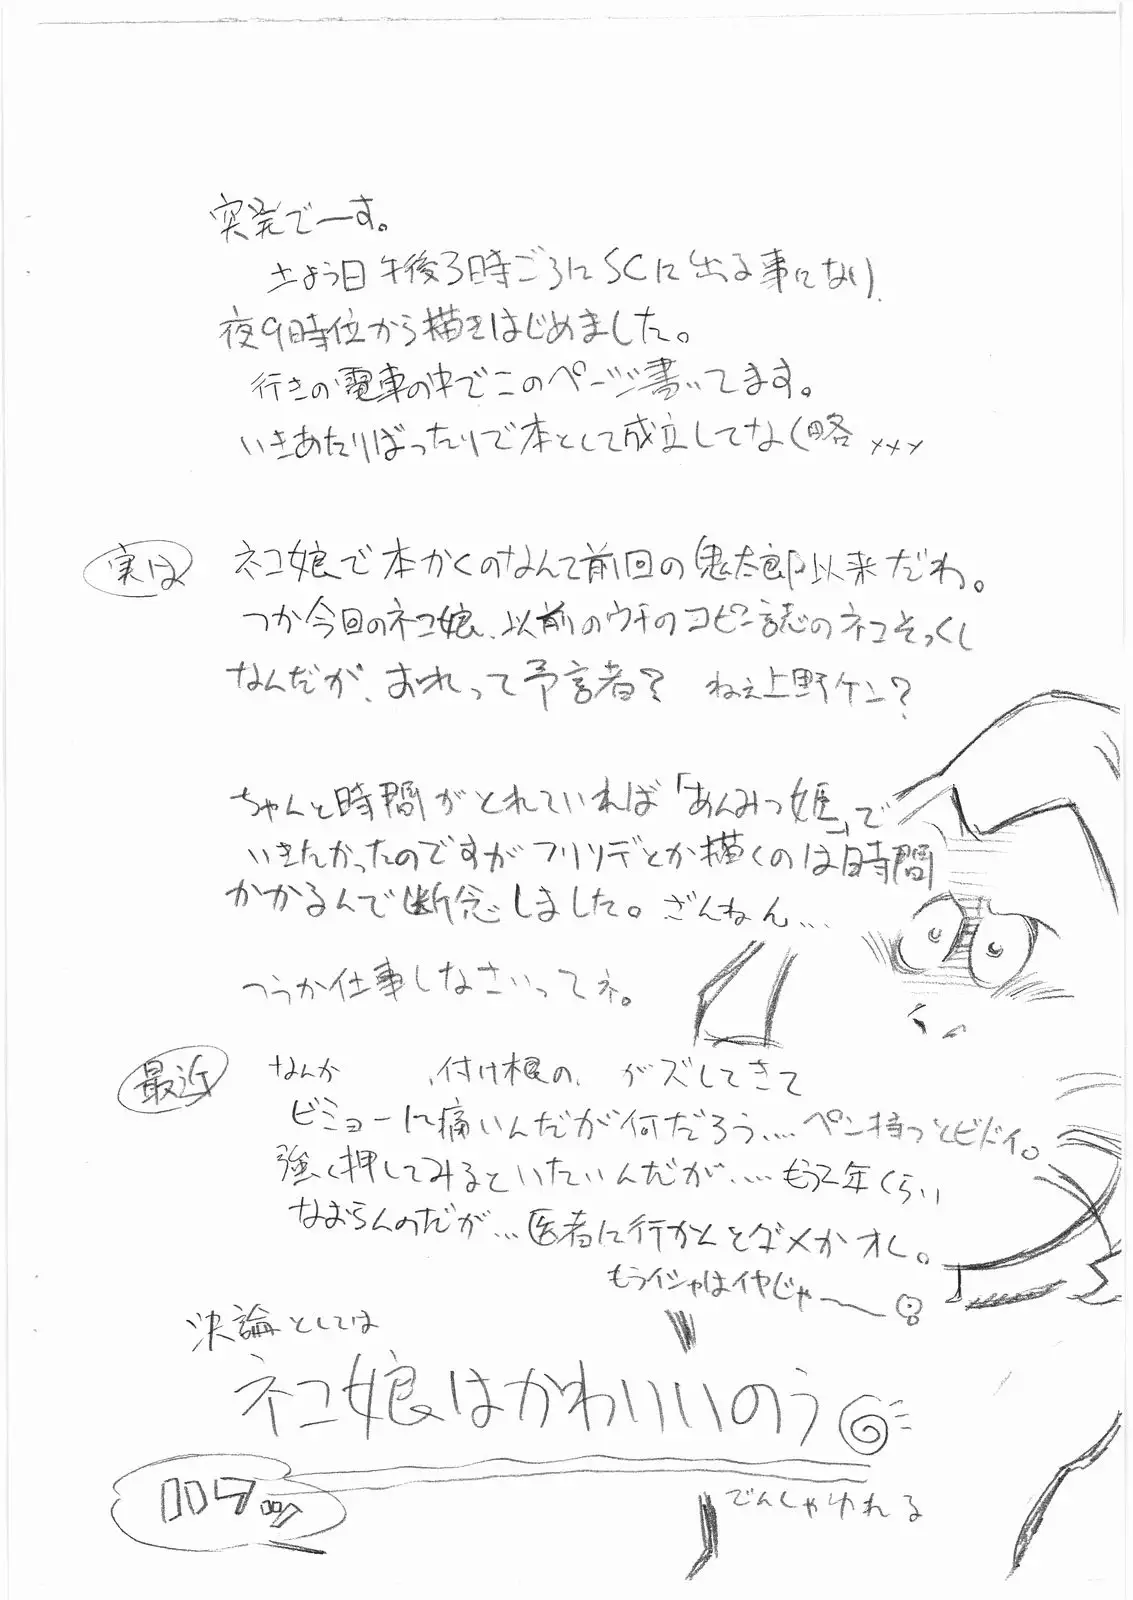 突発でーす。
土よう日午後3時ごろにSCに出る事になり、
夜9時位から描きはじめました。
行きの電車の中でこのページ書いてます。
いきあたりばったりで本として成立してな(略
実は
ネコ娘で本かくのなんて前回の鬼太郎以来だわ。
つか今回のネコ娘、以前のウチのコピー誌のネコそっくし
なんだが、おれって予言者? ねぇ上野ケン?
ちゃんと時間がとれていれば「あんみつ姫」で
いきたかったのですがフリソデとか描くのは時間
かかるんで断念しました。ざんねん…
つうか仕事しなさいってネ。
最近
なんか 付け根の、がズしてきて
ビミョーに痛いんだが何だろう…. ペン持つとヒドイ。
強く押してみるといたいんだが….. もう2年くらい
なおらんのだが…医者に行かんとダメかオレ。
もうイシャはイヤじゃ〜
決論としては
ネコ娘はかわいいのう
でんしゃゆれる